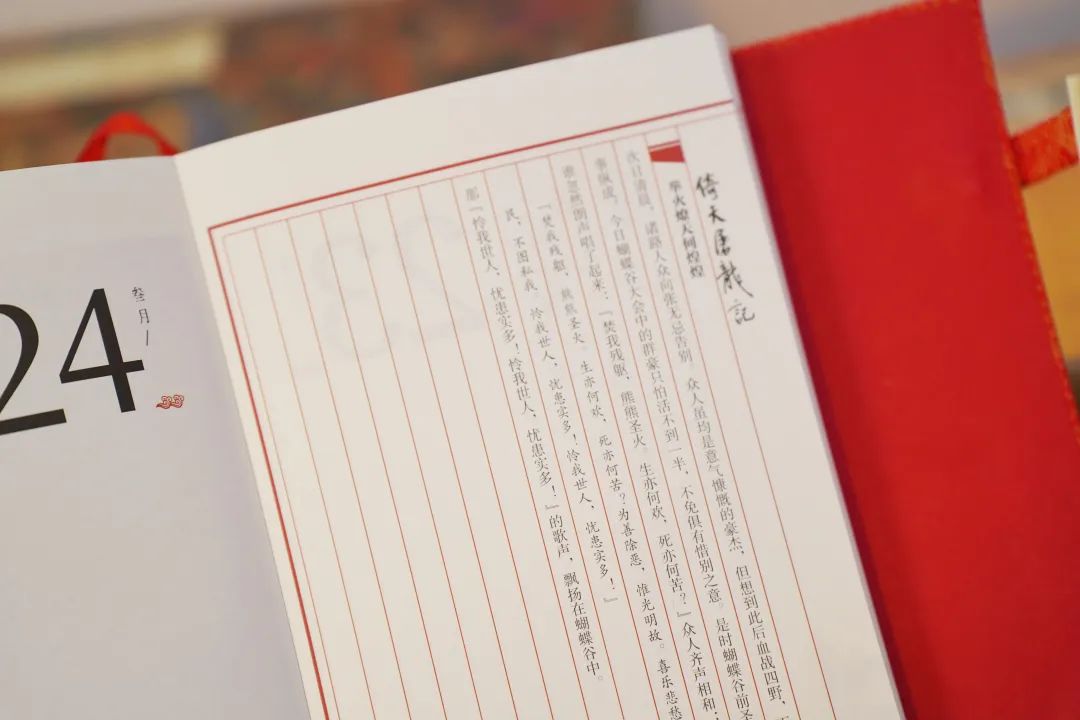 倚天屠龍記
举火燎天何煌煌
次日清晨，诸路人众向张无忌告别。众人虽均是意气慷慨的豪杰，但想到此后血战四野，
事纵成，今日蝴蝶谷大会中的群豪只怕活不到一半，不免俱有惜别之意。是时蝴蝶谷前圣
谁忽然朗声唱了起来：『焚我残躯，熊熊圣火。生亦何欢，死亦何苦？』众人齐声相和：
『焚我残躯，熊熊圣火。生亦何欢，死亦何苦？为善除恶，惟光明故。喜乐悲愁
民，不图私我。怜我世人，忧患实多！怜我世人，忧患实多！』
那『怜我世人，忧患实多！怜我世人，忧患实多！』的歌声，飘扬在蝴蝶谷中。
叁月
24